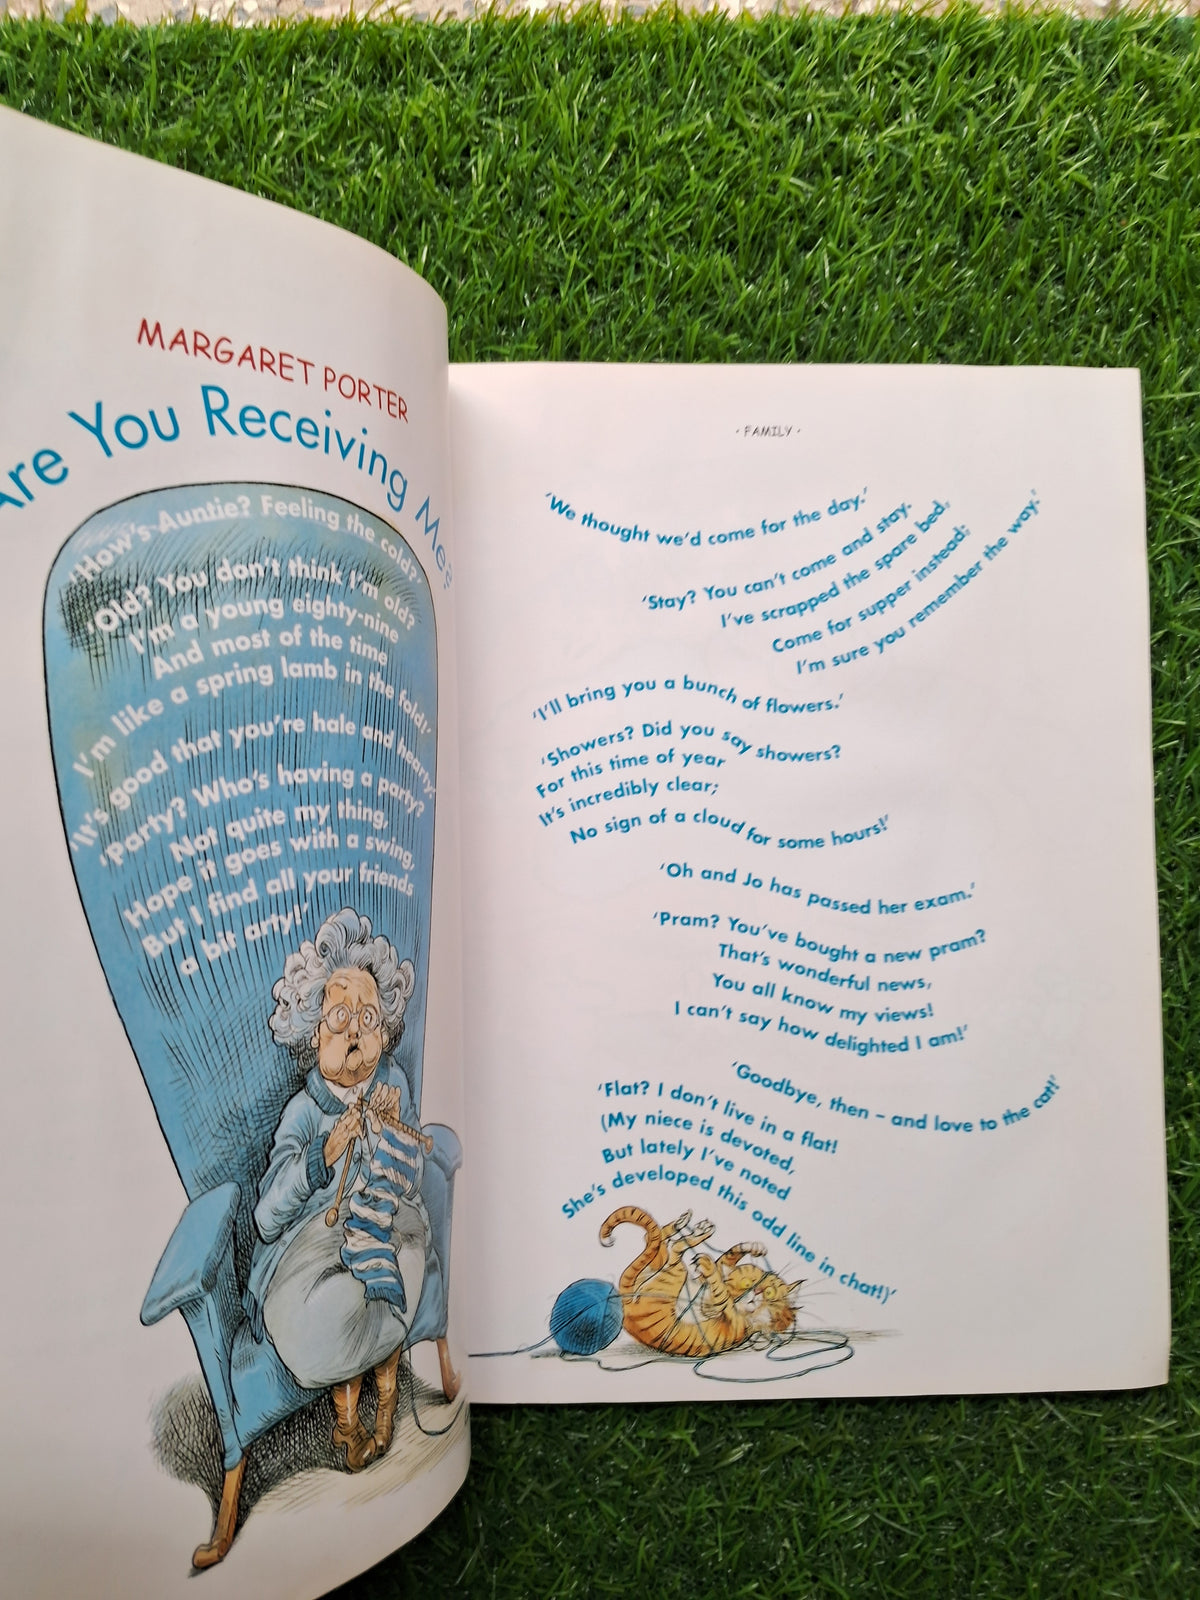 MARGARET PORTER
Are You Receiving Me?
'How's Auntie? Feeling the cold?'
'Old? You don't think I'm old?
I'm a young eighty-nine
And most of the time
I'm like a spring lamb in the fold!'
'It's good that you're hale and hearty.'
'Party? Who's having a party?
Not quite my thing,
Hope it goes with a swing,
But I find all your friends
a bit arty!'
· FAMILY ·
'We thought we'd come for the day.'
'Stay? You can't come and stay.
I've scrapped the spare bed,
Come for supper instead;
I'm sure you remember the way.'
'I'll bring you a bunch of flowers.'
'Showers? Did you say showers?
For this time of year
It's incredibly clear;
No sign of a cloud for some hours!'
'Oh and Jo has passed her exam.'
'Pram? You've bought a new pram?
That's wonderful news,
You all know my views!
I can't say how delighted I am!'
'Goodbye, then – and love to the cat!'
'Flat? I don't live in a flat!
(My niece is devoted,
But lately I've noted
She's developed this odd line in chat!)'